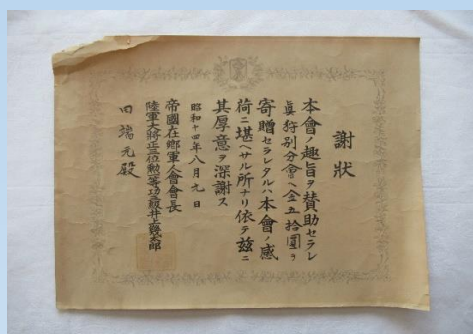 謝狀
本會ノ趣旨ヲ賛助セラレ
眞狩別分會ヘ金五拾圓ヲ
寄贈セラレタルハ本會ノ感
荷ニ堪ヘサル所ナリ依テ玆ニ
其厚意ヲ深謝ス
昭和十四年八月九日
帝國在鄕軍人會會長
陸軍大將正三位勲一等功三級井上幾太郎
田端元殿